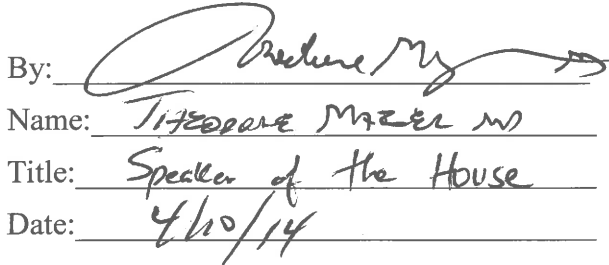 By: Theodore M
Name: THEODORE MAZER MD
Title: Speaker of the House
Date: 4/10/14